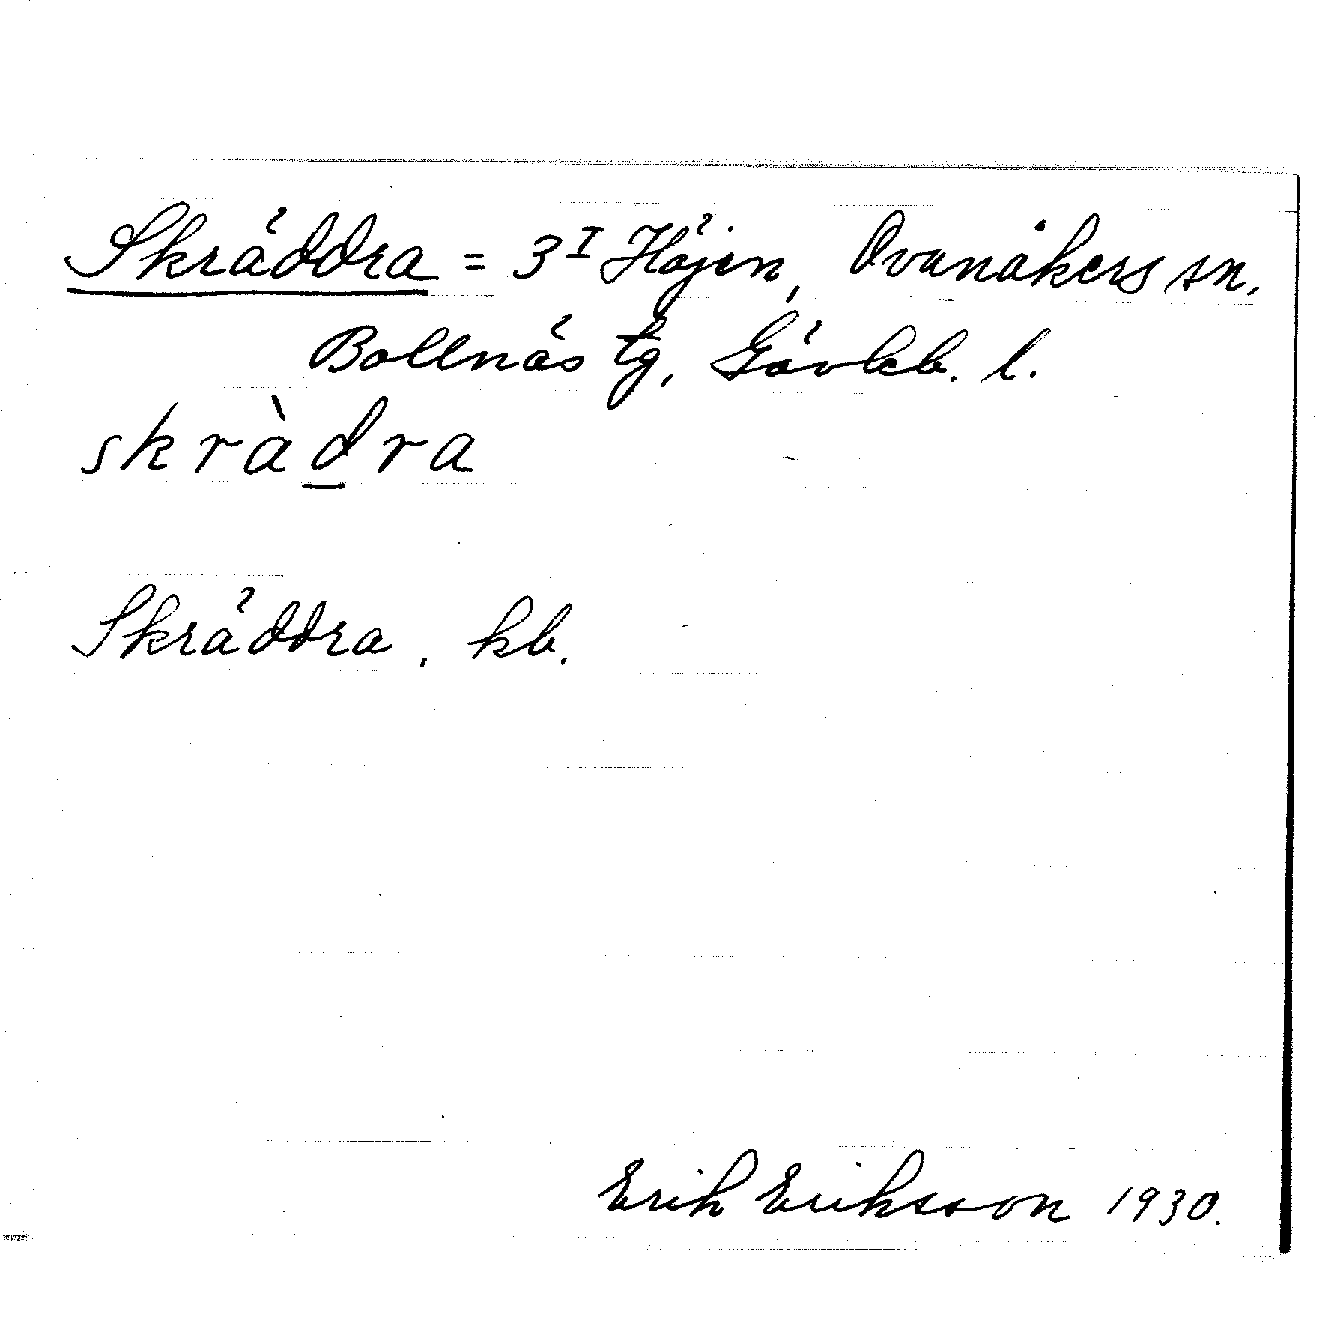 Skräddra = 3ᴵ Höjen, Ovanåkers sn,
Bollnäs tg, Gävleb. l.
skràd̲ra
Skräddra. kb.
Erik Eriksson 1930.